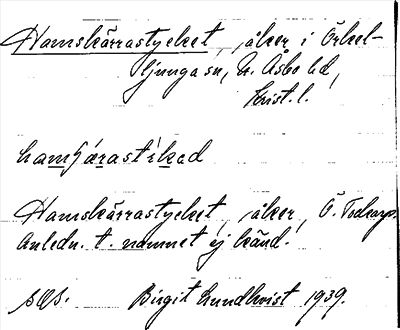 Hamskärrastycket, åker i Örkel-
ljunga sn, N. Åsbo hd,
Krist. l.
Hamskärrastycket, åker, Ö.
Anledn. t. namnet ej känd.
Birgit Lundkvist 1939.